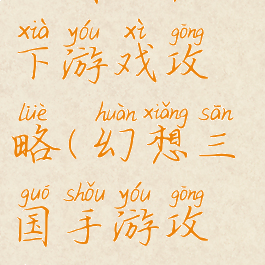 xià yóu xì gōng
下游戏攻
lüè huàn xiǎng sān
略(幻想三
guó shǒu yóu gōng
国手游攻